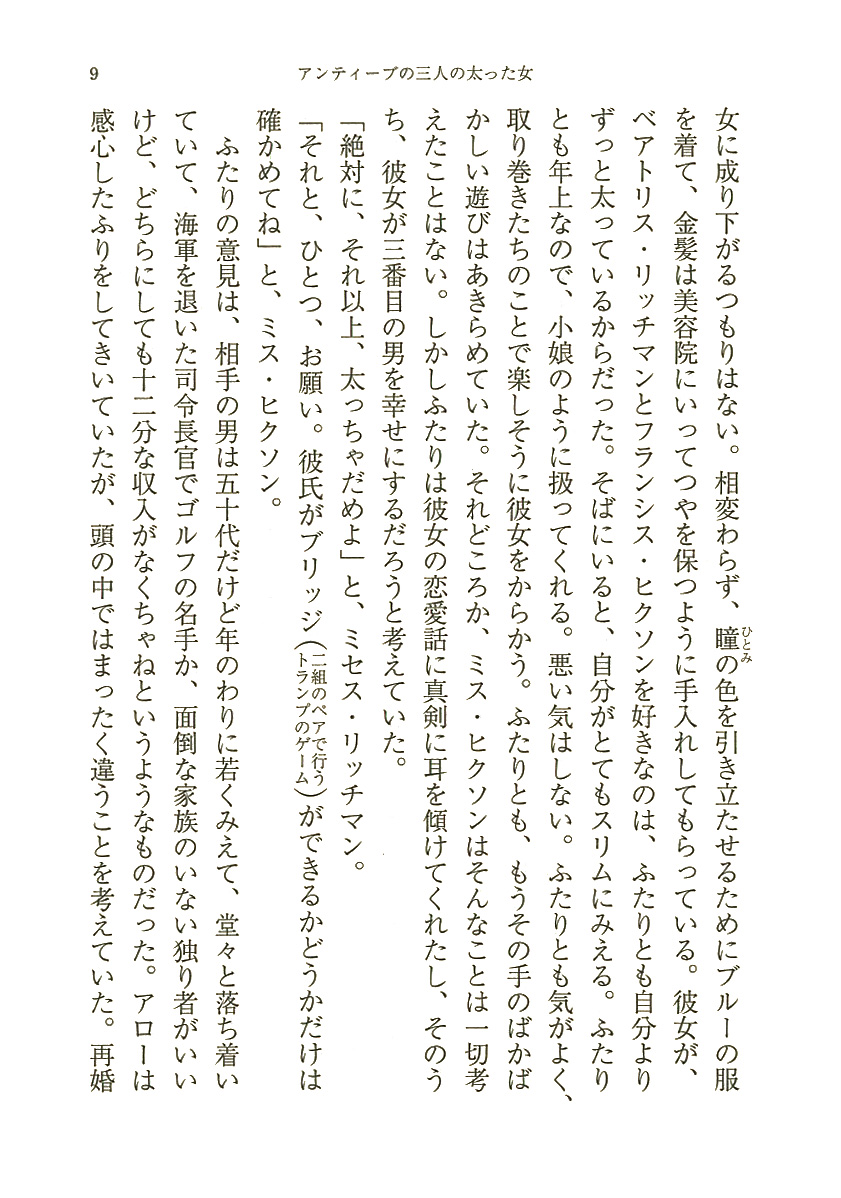 9
アンティーブの三人の太った女
女に成り下がるつもりはない。相変わらず、瞳の色を引き立たせるためにブルーの服
ひとみ
を着て、金髪は美容院にいってつやを保つように手入れしてもらっている。彼女が、
ベアトリス・リッチマンとフランシス・ヒクソンを好きなのは、ふたりとも自分より
ずっと太っているからだった。そばにいると、自分がとてもスリムにみえる。ふたり
とも年上なので、小娘のように扱ってくれる。悪い気はしない。ふたりとも気がよく、
取り巻きたちのことで楽しそうに彼女をからかう。ふたりとも、もうその手のばかば
かしい遊びはあきらめていた。それどころか、ミス・ヒクソンはそんなことは一切考
えたことはない。しかしふたりは彼女の恋愛話に真剣に耳を傾けてくれたし、そのう
ち、彼女が三番目の男を幸せにするだろうと考えていた。
「絶対に、それ以上、太っちゃだめよ」と、ミセス・リッチマン。
「それと、ひとつ、お願い。彼氏がブリッジ(二組のペアで行うトランプのゲーム)ができるかどうかだけは
確かめてね」と、ミス・ヒクソン。
ふたりの意見は、相手の男は五十代だけど年のわりに若くみえて、堂々と落ち着い
ていて、海軍を退いた司令長官でゴルフの名手か、面倒な家族のいない独り者がいい
けど、どちらにしても十二分な収入がなくちゃねというようなものだった。アローは
感心したふりをしてきいていたが、頭の中ではまったく違うことを考えていた。再婚